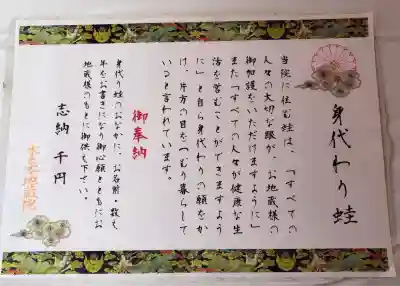 身代わり蛙
当院に住む蛙は、「すべての
人々の大切な眼が、お地蔵様の
御加護をいただけますように」
また「すべての人々が健康な生
活を営むことができますよう
に」と自ら身代わりの願をか
け、片方の目をつむり暮らして
いると言われています。
御奉納
身代り蛙のおなかに、お名前・数え
年をお書きになり御心願とともにお
地蔵様のもとに御供え下さい。
志納 千円